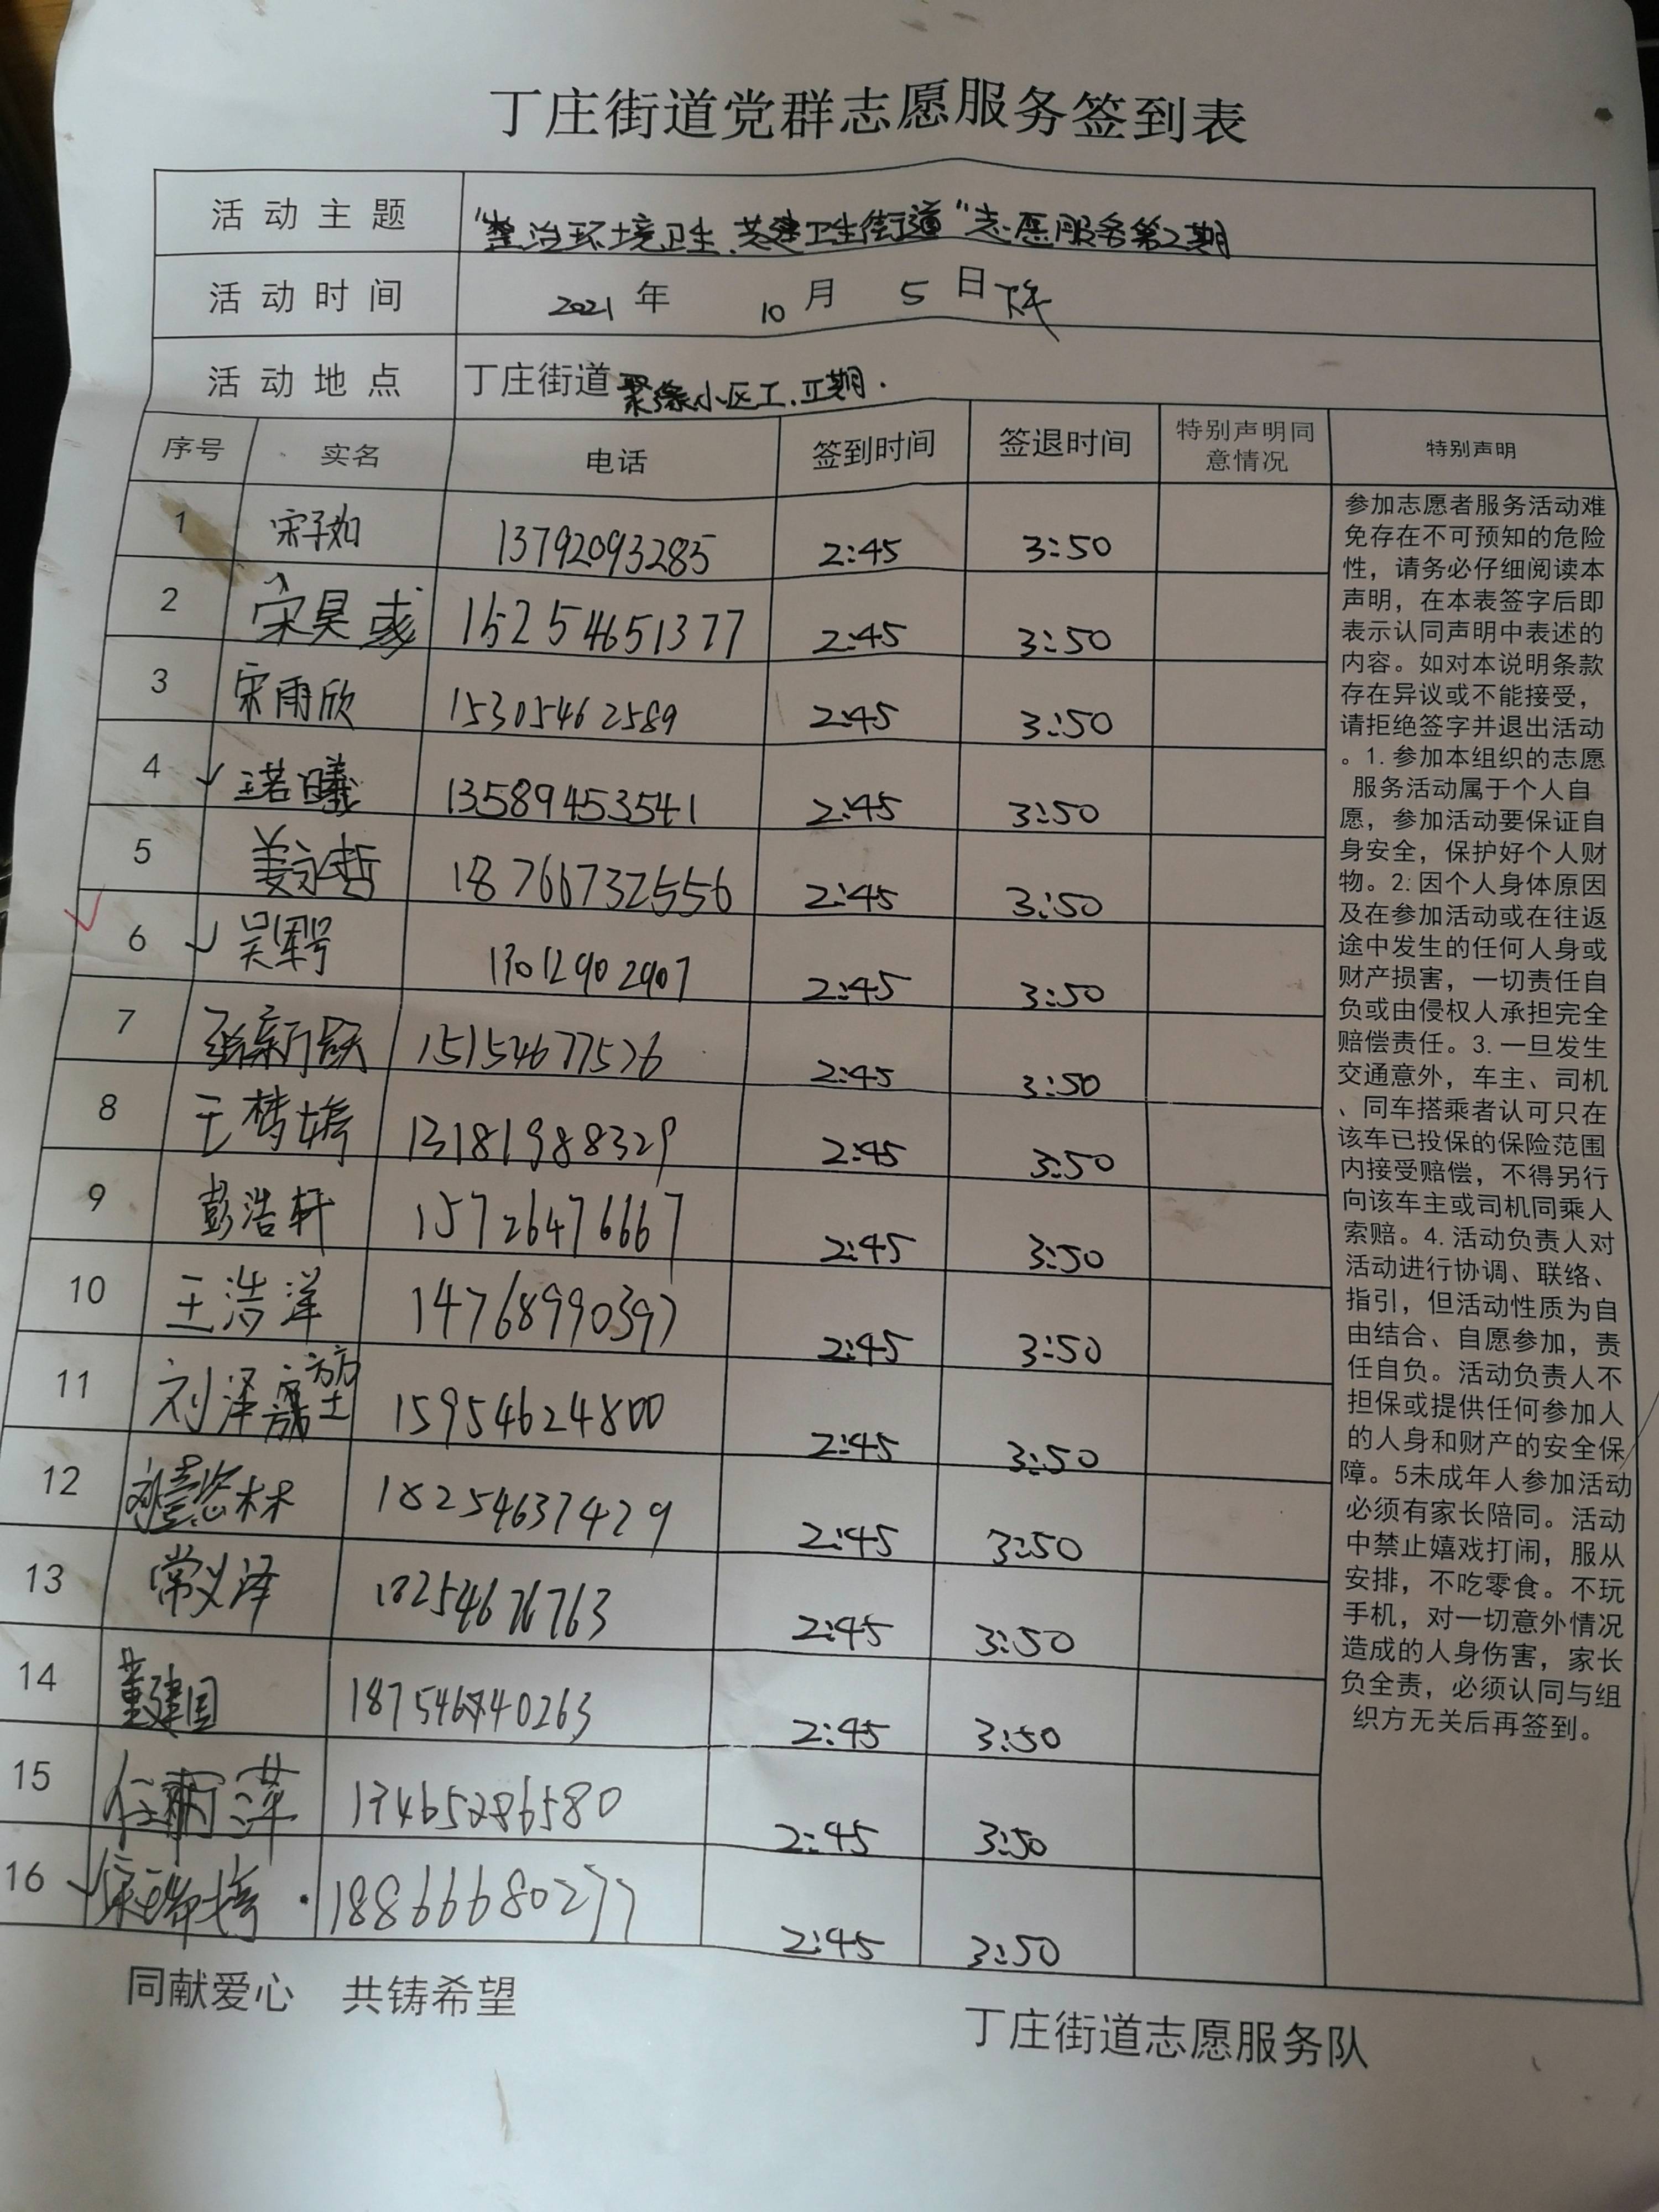 丁庄街道党群志愿服务签到表
活动主题 "整治环境卫生.共建卫生街道"志愿服务第2期
活动时间 2021年 10月 5日下午
活动地点 丁庄街道聚缘小区I.II期.
序号 实名 电话 签到时间 签退时间 特别声明同意情况 特别声明
1 宋子如 13792093285 2:45 3:50
2 宋昊彧 15254651377 2:45 3:50
3 宋雨欣 15305462589 2:45 3:50
4 王若曦 13589453541 2:45 3:50
5 姜永哲 18766732556 2:45 3:50
6 13012902907 2:45 3:50
7 15154677526 2:45 3:50
8 王梦婷 13181988329 2:45 3:50
9 彭浩轩 15726476667 2:45 3:50
10 王浩洋 14768990397 2:45 3:50
11 刘泽 15954624800 2:45 3:50
12 18254637429 2:45 3:50
13 常义泽 2:45 3:50
14 董建国 2:45 3:50
15 任丽萍 2:45 3:50
16 宋瑞婷 18866680277 2:45 3:50
参加志愿者服务活动难
免存在不可预知的危险
性，请务必仔细阅读本
声明，在本表签字后即
表示认同声明中表述的
内容。如对本说明条款
存在异议或不能接受，
请拒绝签字并退出活动
。1.参加本组织的志愿
服务活动属于个人自
愿，参加活动要保证自
身安全，保护好个人财
物。2:因个人身体原因
及在参加活动或在往返
途中发生的任何人身或
财产损害，一切责任自
负或由侵权人承担完全
赔偿责任。3.一旦发生
交通意外，车主、司机
、同车搭乘者认可只在
该车已投保的保险范围
内接受赔偿，不得另行
向该车主或司机同乘人
索赔。4.活动负责人对
活动进行协调、联络、
指引，但活动性质为自
由结合、自愿参加，责
任自负。活动负责人不
担保或提供任何参加人
的人身和财产的安全保
障。5未成年人参加活动
必须有家长陪同。活动
中禁止嬉戏打闹，服从
安排，不吃零食。不玩
手机，对一切意外情况
造成的人身伤害，家长
负全责，必须认同与组
织方无关后再签到。
同献爱心 共铸希望
丁庄街道志愿服务队